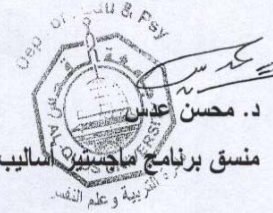 Dep. of Edu & Psy
د. محسن عدس
منسق برنامج ماجستير أساليب
التربية وعلم النفس